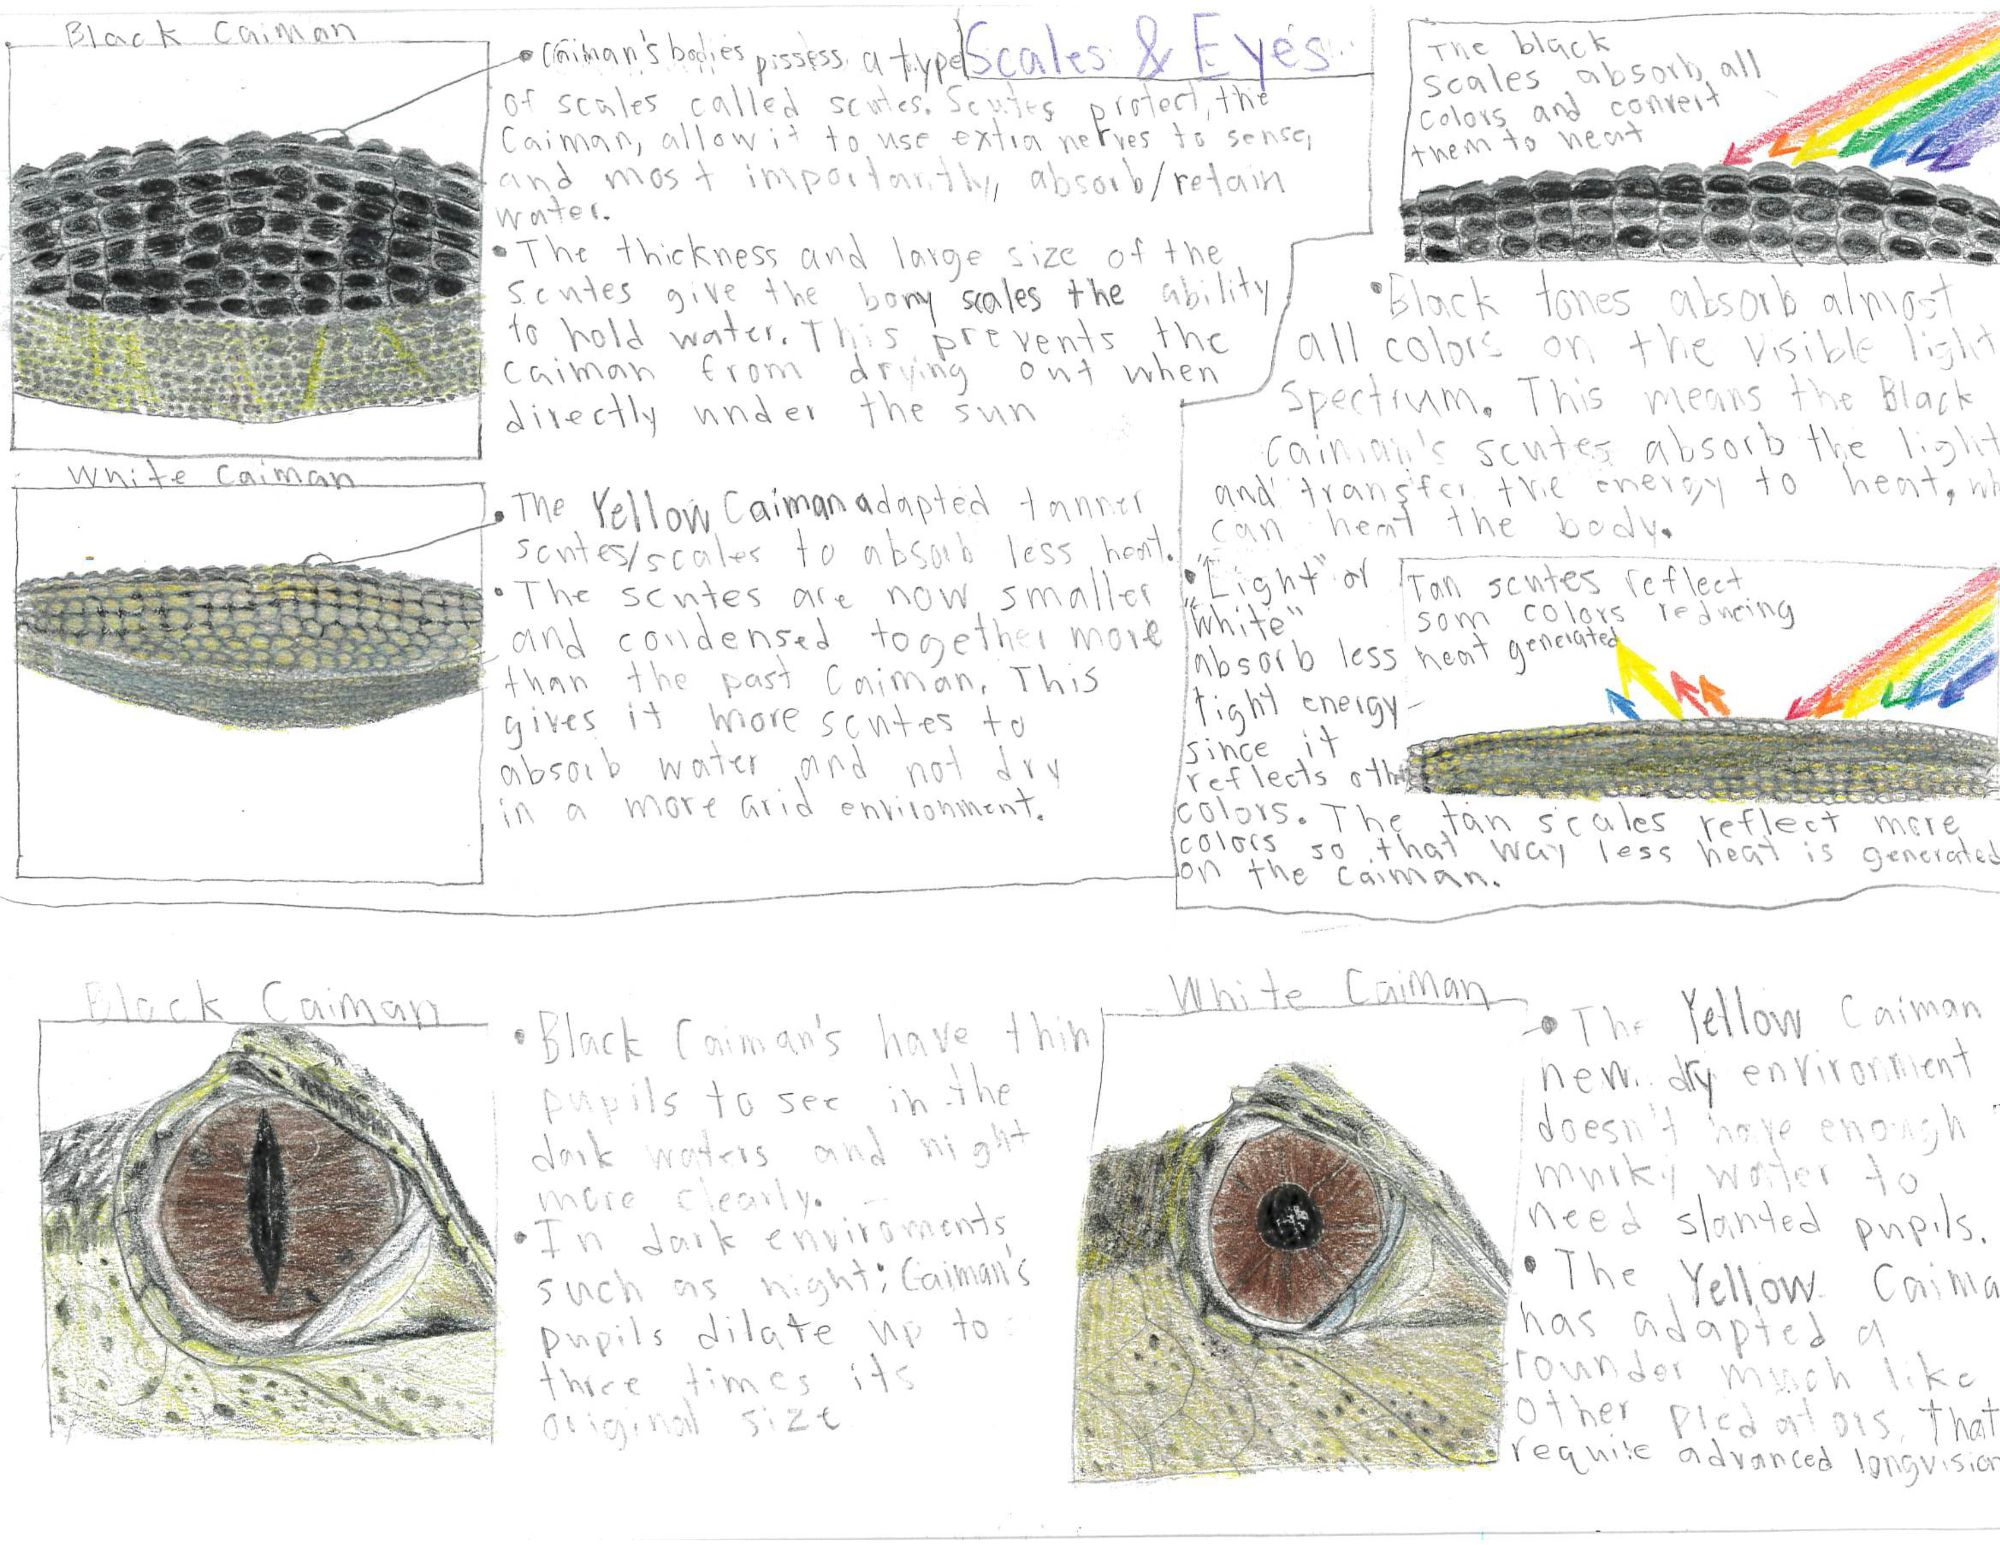 Scales & Eyes
Black Caiman
• Caiman's bodies pissess a type
of scales called scutes. Scutes protect the
Caiman, allow it to use extra nerves to sense,
and most importantly, absorb/retain
water.
• The thickness and large size of the
scutes give the bony scales the ability
to hold water. This prevents the
caiman from drying out when
directly under the sun
White Caiman
• The Yellow Caiman adapted tanner
scutes/scales to absorb less heat.
• The scutes are now smaller
and condensed together more
than the past Caiman. This
gives it more scutes to
absorb water and not dry
in a more arid environment.
The black
scales absorb all
colors and convert
them to heat
• Black tones absorb almost
all colors on the visible light
spectrum. This means the Black
Caiman's scutes absorb the light
and transfer the energy to heat, wh
can heat the body.
• "Light" or
"White"
absorb less
light energy
since it
reflects oth
colors. The tan scales reflect more
colors so that way less heat is generated
on the caiman.
Tan scutes reflect
som colors reducing
heat generated
Black Caiman
• Black Caiman's have thin
pupils to see in the
dark waters and night
more clearly.
• In dark enviroments
such as night; Caiman's
pupils dilate up to
three times its
original size
White Caiman
• The Yellow Caiman
new dry environment
doesn't have enough
murky water to
need slanted pupils.
• The Yellow Caima
has adapted a
rounder much like
other predators that
require advanced longvision